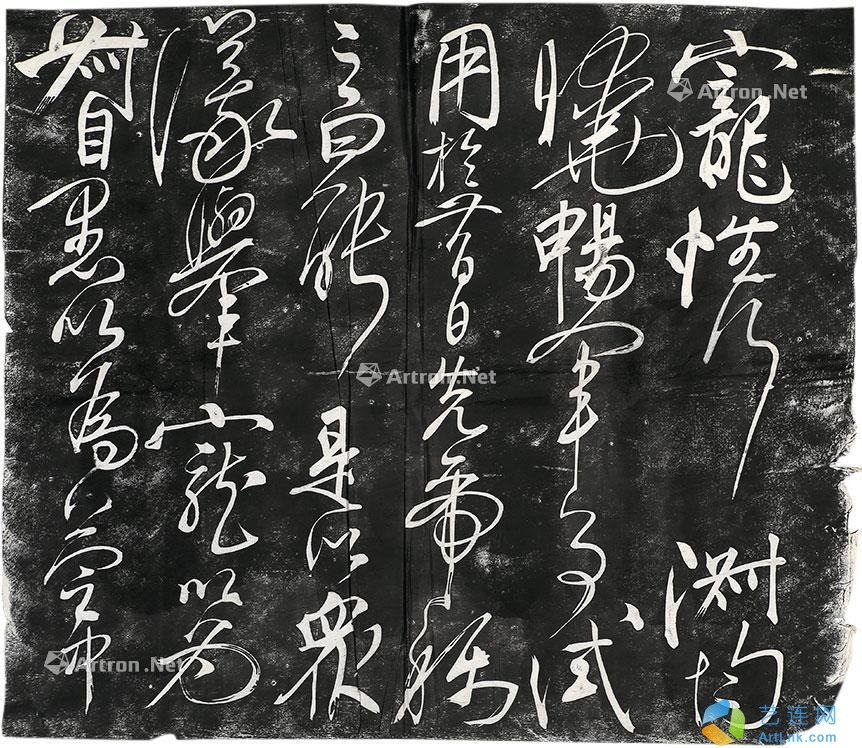 寵性行淑均
曉暢軍事試
用於昔日先帝稱
之曰能是以衆
議舉寵以為
督愚以為營中
Artron.Net
Artron.Net
Artron.Net
Artron.Net
艺连网
ArtLnk.com